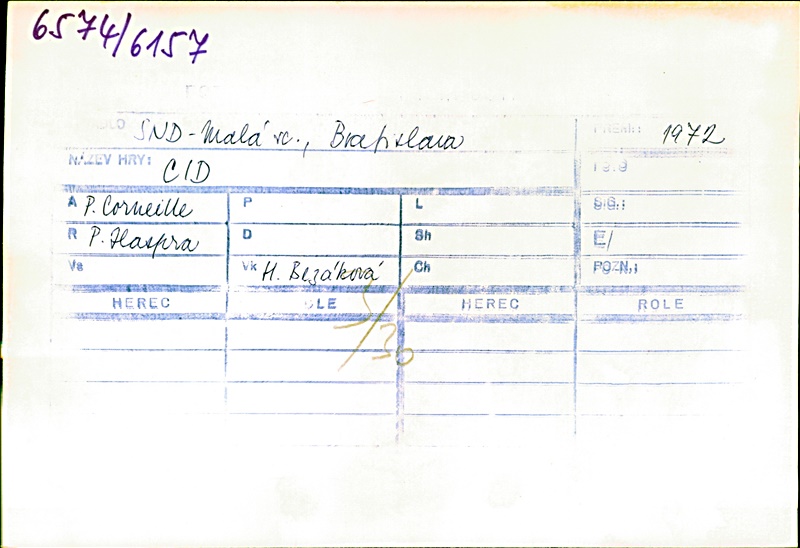 6574/6157
SND - Malá sc., Bratislava 1972
NÁZEV HRY: CID
A P. Corneille P L SIG.:
R P. Haspra D Sh E/
Vk H. Bezáková Ch POZN.:
HEREC HEREC ROLE
5/30